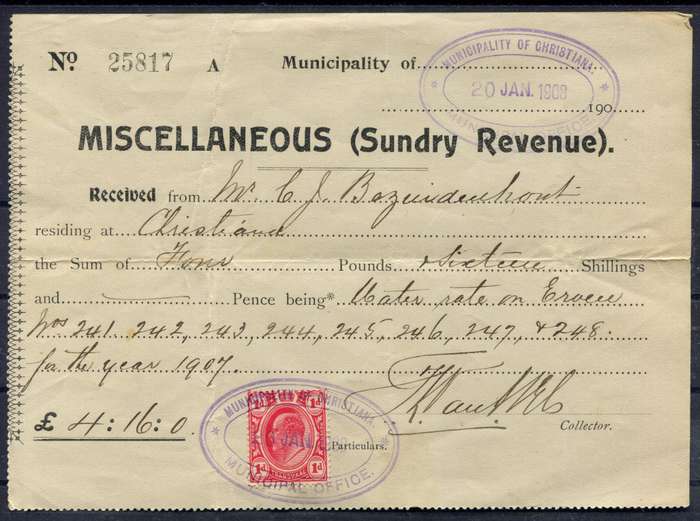 No. 25817 A Municipality of
MUNICIPALITY OF CHRISTIANA.
20 JAN. 1908
MUNICIPAL OFFICE.
190
MISCELLANEOUS (Sundry Revenue).
Received from Mr C. J. Bezuidenhout
residing at Christiana
the Sum of Four Pounds & Sixteen Shillings
and Pence being* Water rate on Erven
Nos 241, 242, 243, 244, 245, 246, 247, & 248
for the year 1907.
£ 4:16:0
Collector.
MUNICIPALITY OF CHRISTIANA.
JAN.
1d 1d
1d 1d
Particulars.
MUNICIPAL OFFICE.